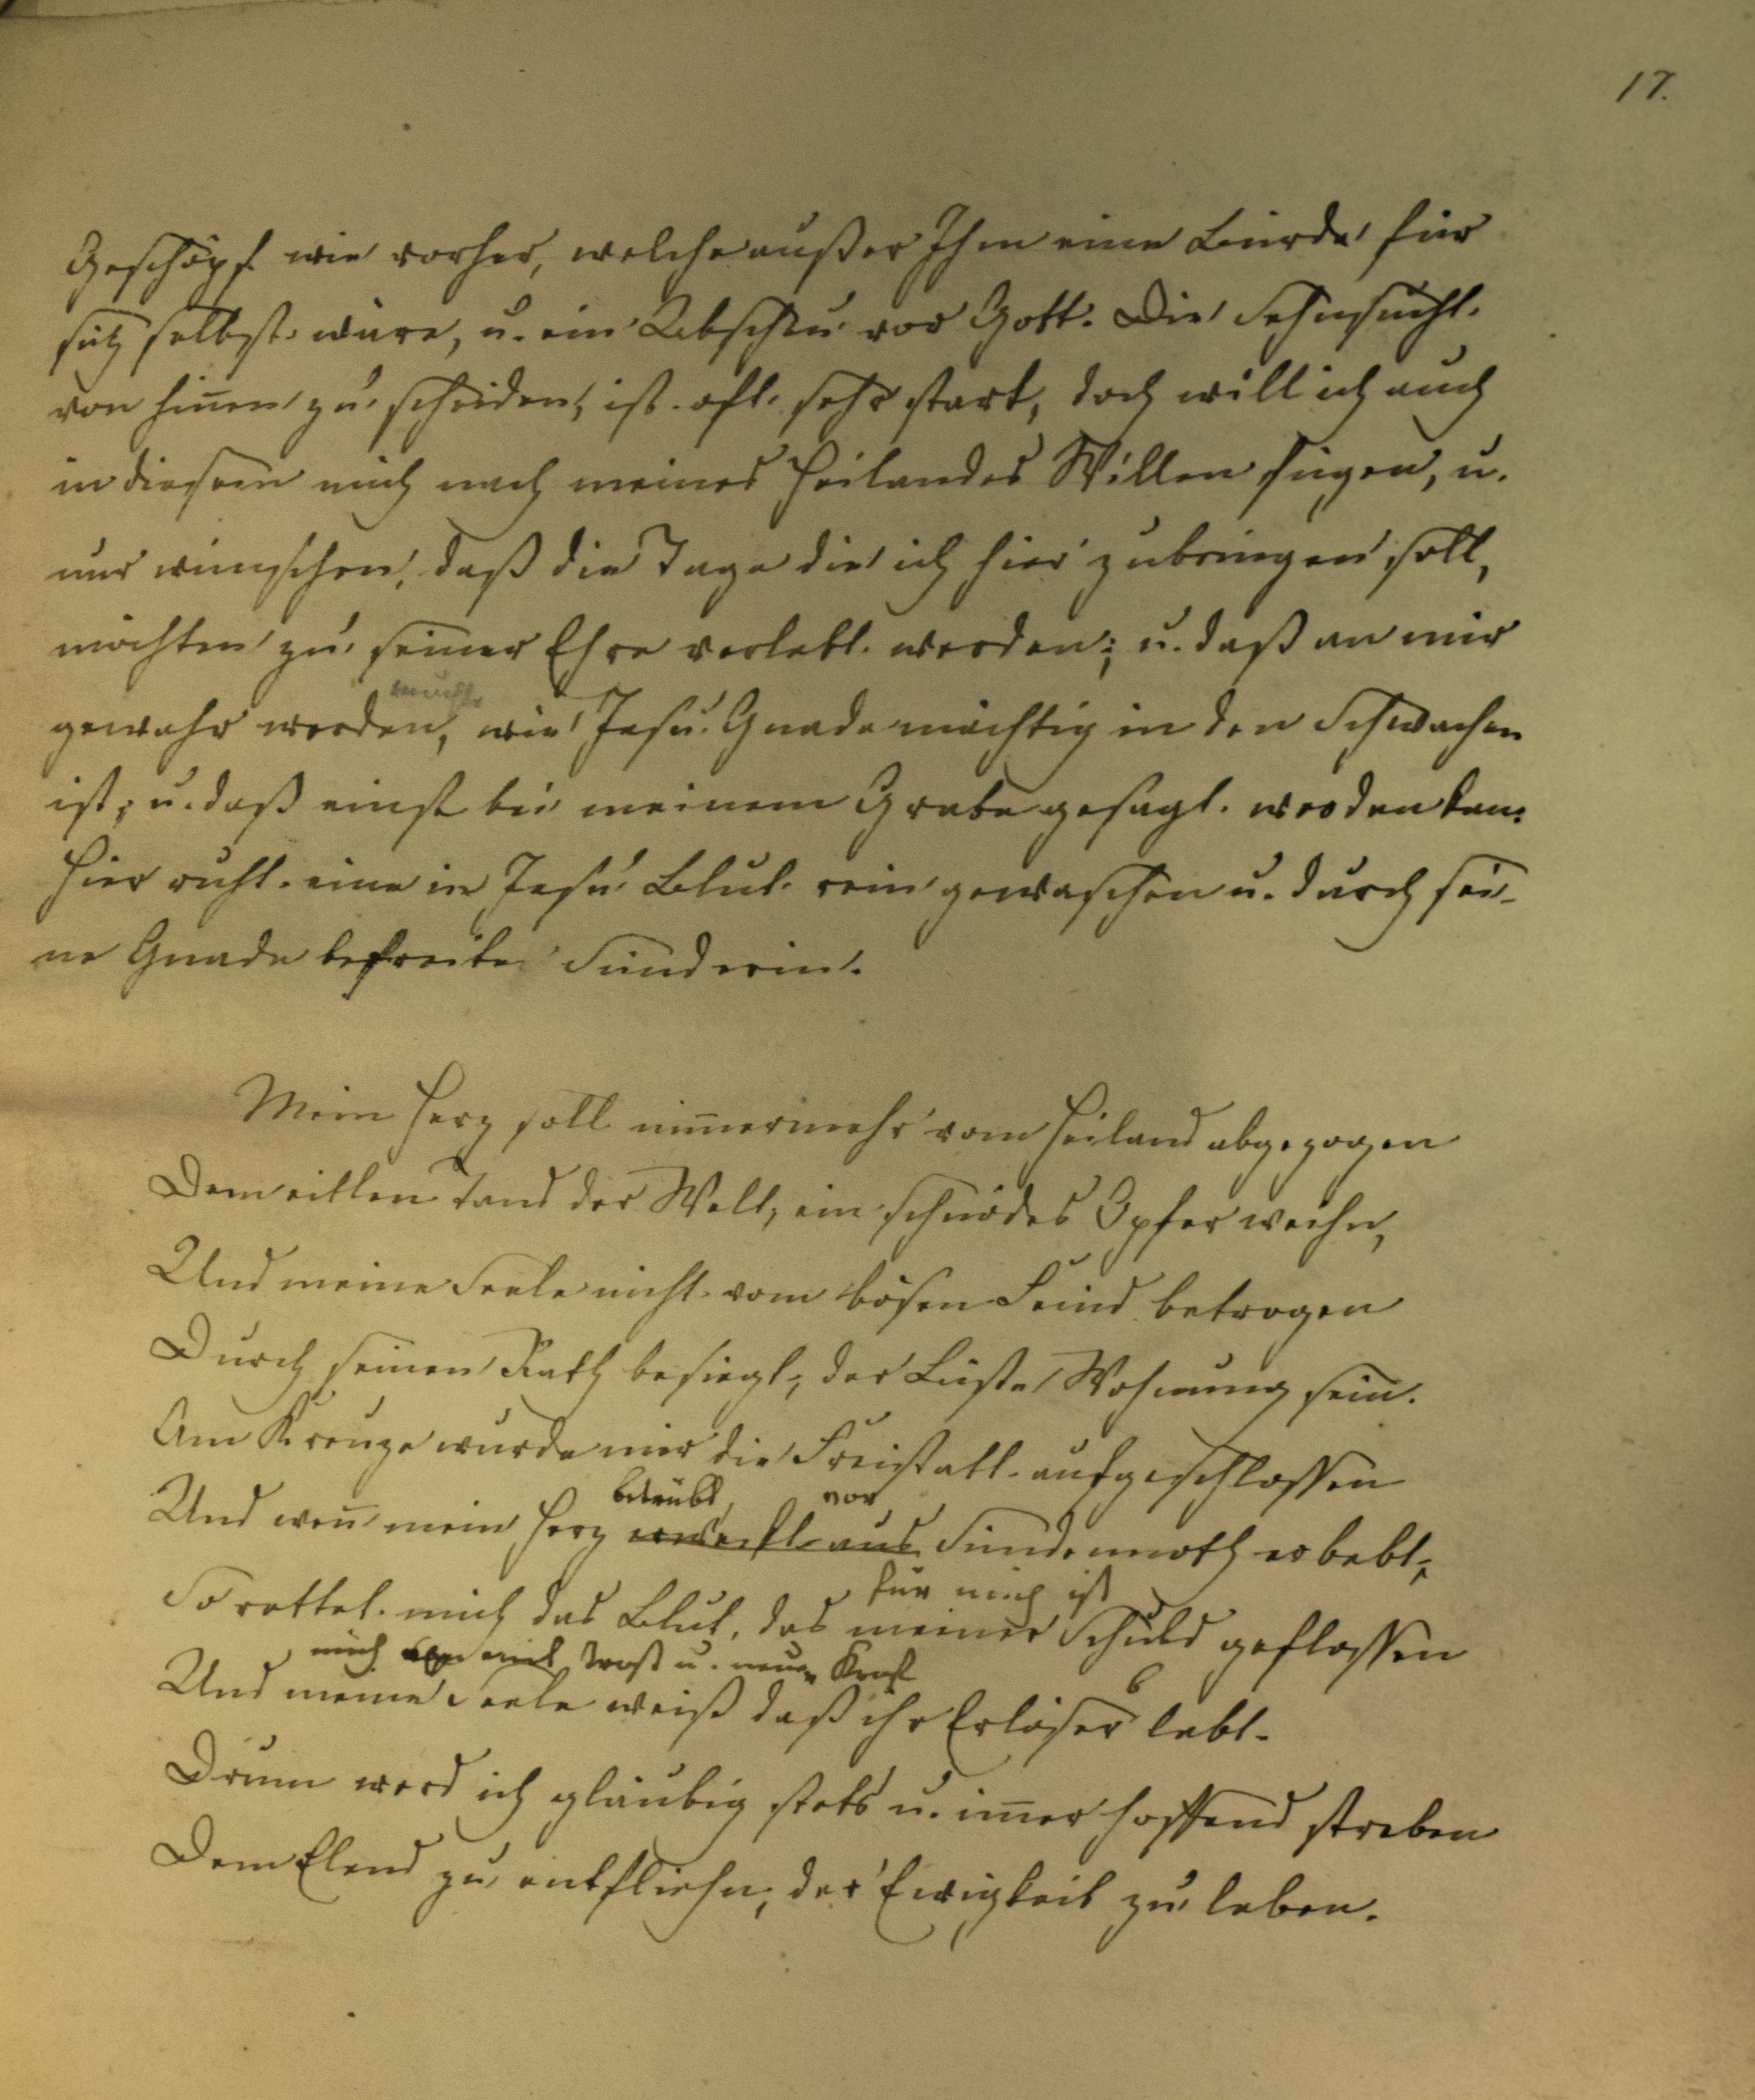 17.
Geschöpf wie vorher, welche außer Ihm eine Bürde für
sich selbst wäre, u. ein Abscheu vor Gott. Die Sehnsucht
von hin̄en zu scheiden, ist oft sehr stark, doch will ich auch
in diesem mich nach meines Heilandes Willen fügen, u.
nur wünschen, daß die Tage die ich hier zubringen soll,
möchten zu seiner Ehre verlebt werden; u. daß an mir
möchte
gewahr werden, wie Jesu Gnade mächtig in den Schwachen
ist, u. daß einst bei meinem Grabe gesagt werden kan:
Hier ruht eine in Jesu Blut rein gewaschen u. durch sei-
ne Gnade befreite Sünderin.
Mein Herz soll nim̄ermehr vom Heiland abgezogen
Dem eitlen Tand der Welt, ein schnödes Opfer weihn,
Und meine Seele nicht vom bösen Feind betrogen
Durch seinen Rath besiegt, der Lüste Wohnung sein.
Am Kreuze wurde mir die Freistatt aufgeschlossen
betrübt vor
Und wen̄ mein Herz erweckt aus Sündennoth erbebt,
für mich ist
So rettet mich das Blut, das meiner Schuld geflossen
mich mit Trost u. neuer Kraft
Und meine Seele weiß daß ihr Erlöser lebt.
Drum werd ich gläubig stets u. im̄er hoffend streben
Dem Elend zu entfliehn, der Ewigkeit zu leben.